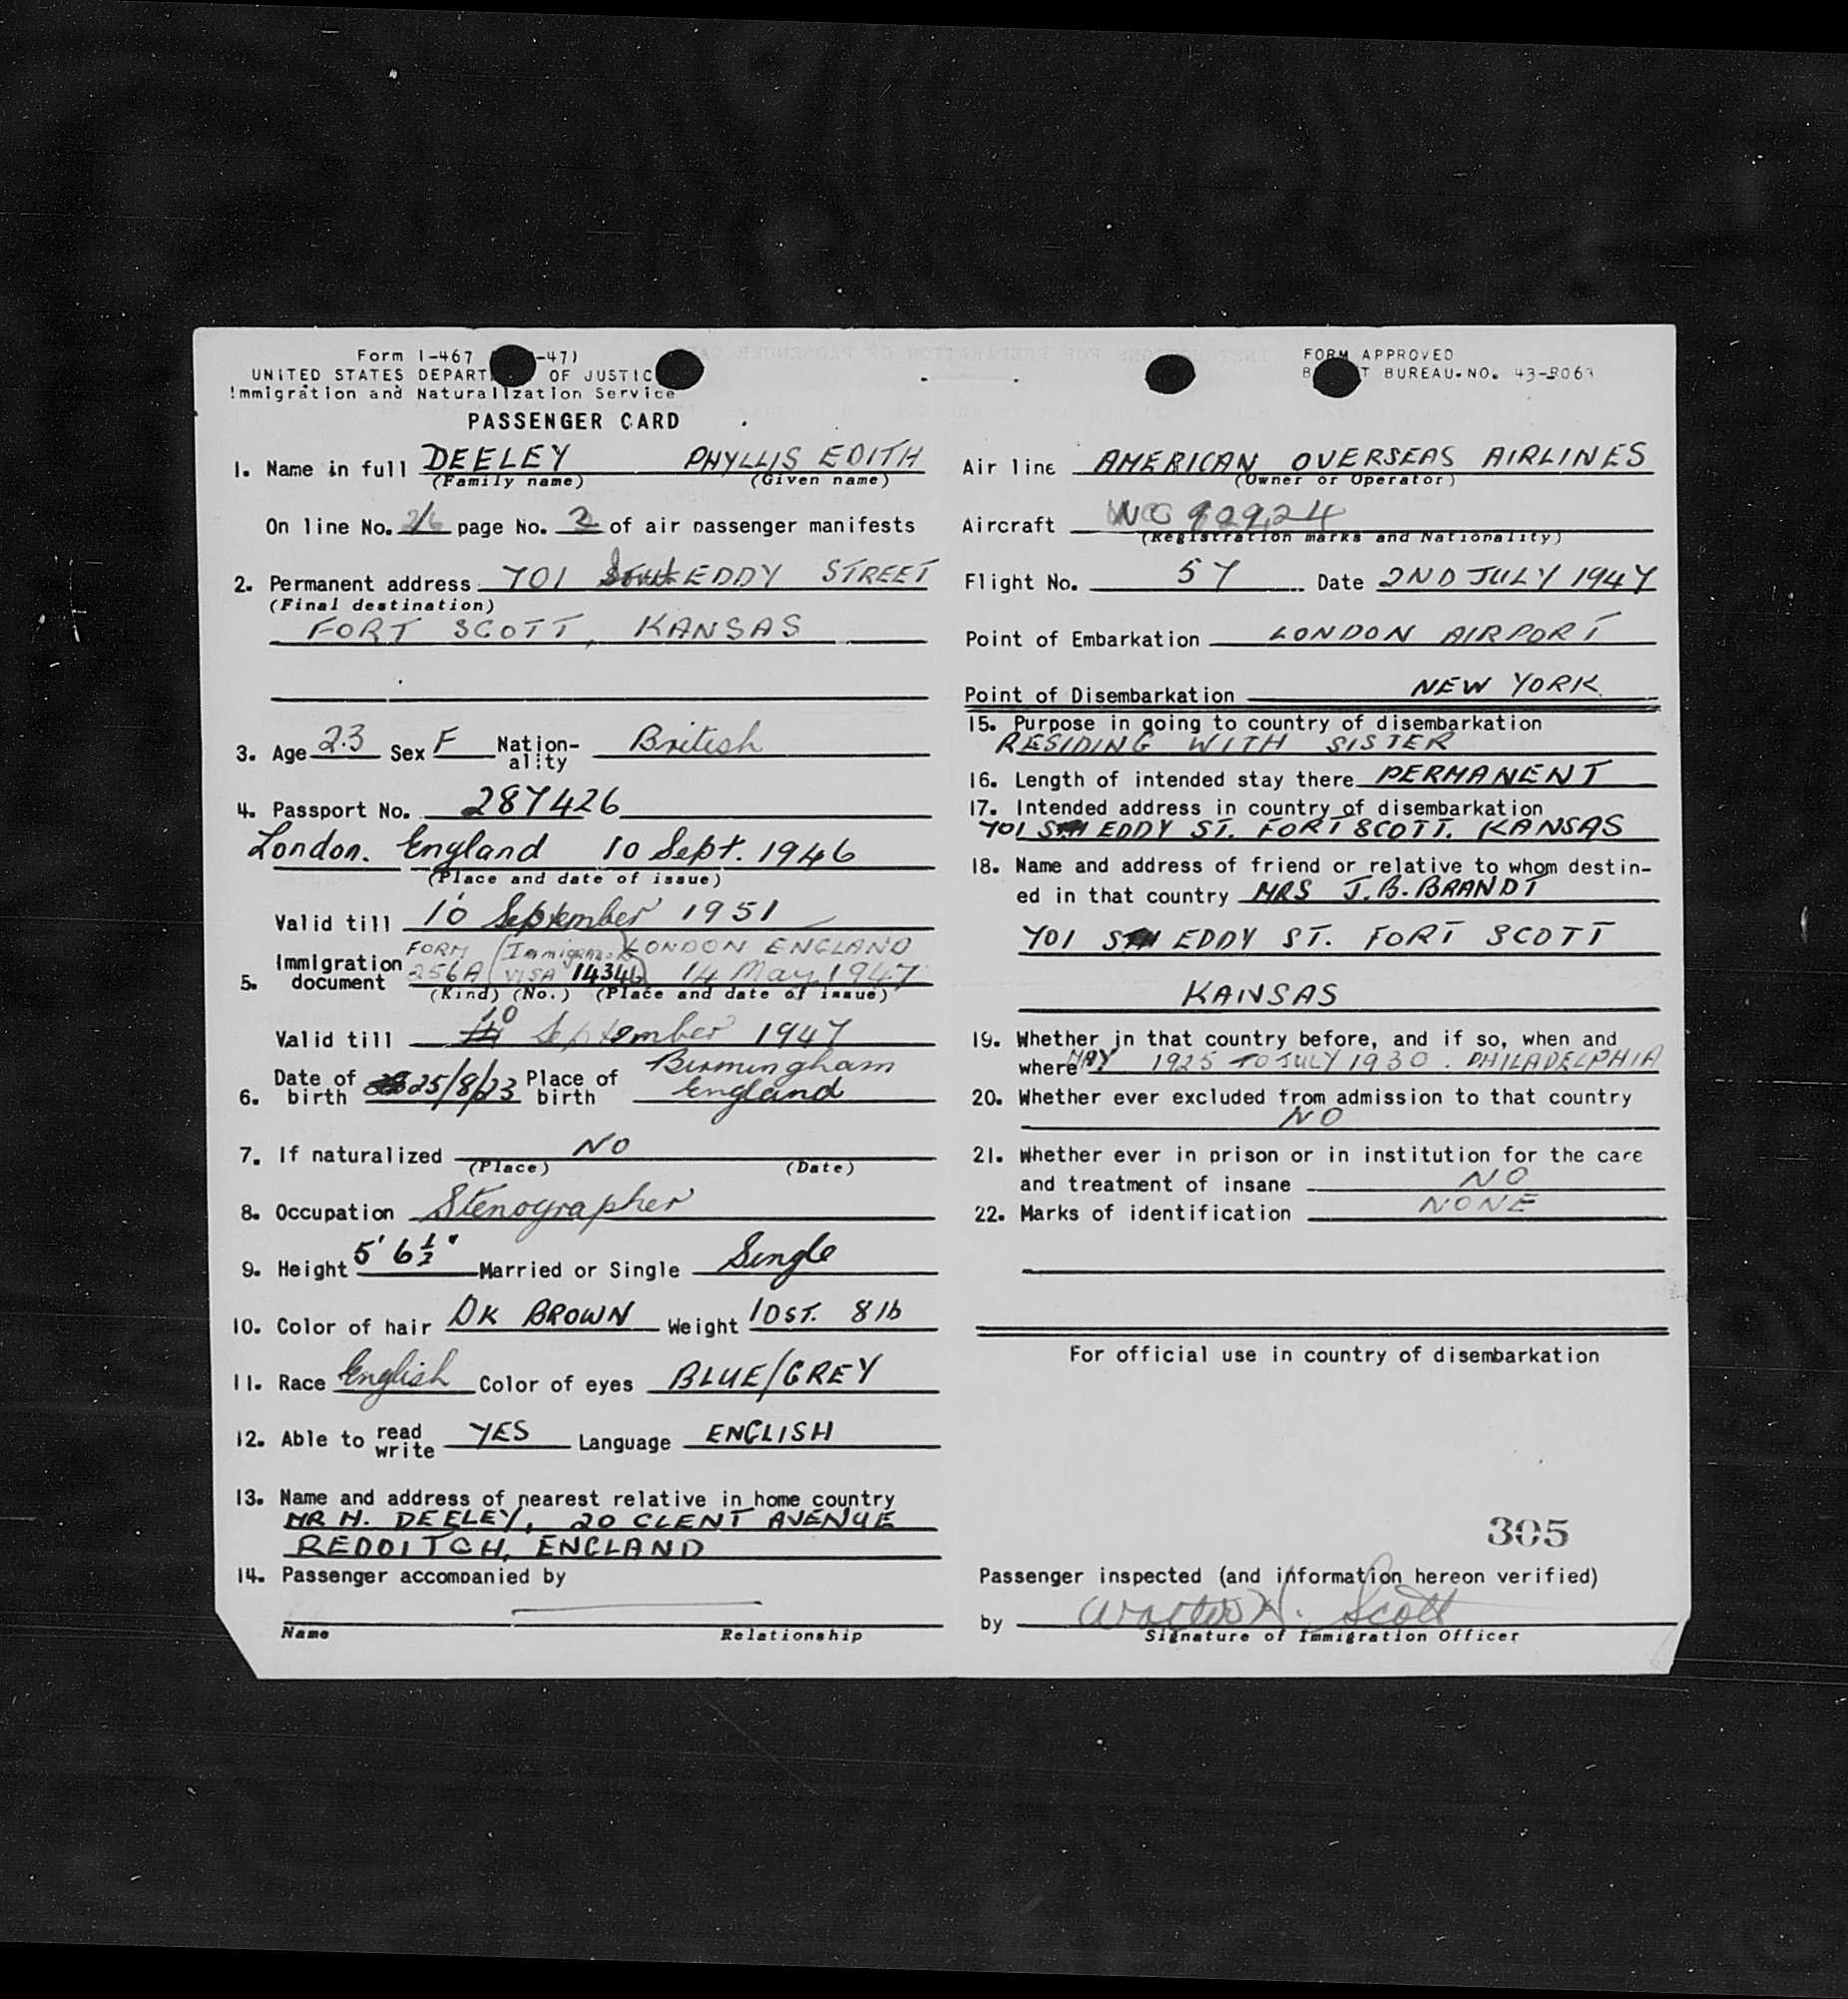 Form I-467 -47)
UNITED STATES DEPART OF JUSTIC
Immigration and Naturalization Service
PASSENGER CARD
1. Name in full DEELEY PHYLLIS EDITH
(Family name) (Given name)
On line No. page No. 2 of air passenger manifests
2. Permanent address 701 EDDY STREET
(Final destination)
FORT SCOTT, KANSAS
3. Age 23 Sex F Nation-ality British
4. Passport No. 287426
London. England 10 Sept. 1946
(Place and date of issue)
Valid till 10 September 1951
FORM (Immigration LONDON ENGLAND
5. Immigration document 256A VISA 14346) 14 May 1947
(Kind) (No.) (Place and date of issue)
Valid till 10 September 1947
6. Date of birth 25/8/23 Place of birth Birmingham England
7. If naturalized NO
(Place) (Date)
8. Occupation Stenographer
9. Height 5' 6½" Married or Single Single
10. Color of hair DK BROWN Weight 10 ST. 8 lb
11. Race English Color of eyes BLUE/GREY
12. Able to read write YES Language ENGLISH
13. Name and address of nearest relative in home country
MR H. DEELEY, 20 CLENT AVENUE
REDDITCH, ENGLAND
14. Passenger accompanied by
Name Relationship
FORM APPROVED
B T BUREAU.NO. 43-
Air line AMERICAN OVERSEAS AIRLINES
(Owner or Operator)
Aircraft NC 90924
(Registration marks and Nationality)
Flight No. 57 Date 2ND JULY 1947
Point of Embarkation LONDON AIRPORT
Point of Disembarkation NEW YORK
15. Purpose in going to country of disembarkation
RESIDING WITH SISTER
16. Length of intended stay there PERMANENT
17. Intended address in country of disembarkation
701 STH EDDY ST. FORT SCOTT. KANSAS
18. Name and address of friend or relative to whom destin-
ed in that country MRS J.B. BRANDT
701 STH EDDY ST. FORT SCOTT
KANSAS
19. Whether in that country before, and if so, when and
where MAY 1925 TO JULY 1930. PHILADELPHIA
20. Whether ever excluded from admission to that country
NO
21. Whether ever in prison or in institution for the care
and treatment of insane NO
22. Marks of identification NONE
For official use in country of disembarkation
305
Passenger inspected (and information hereon verified)
by Walter H. Scott
Signature of Immigration Officer